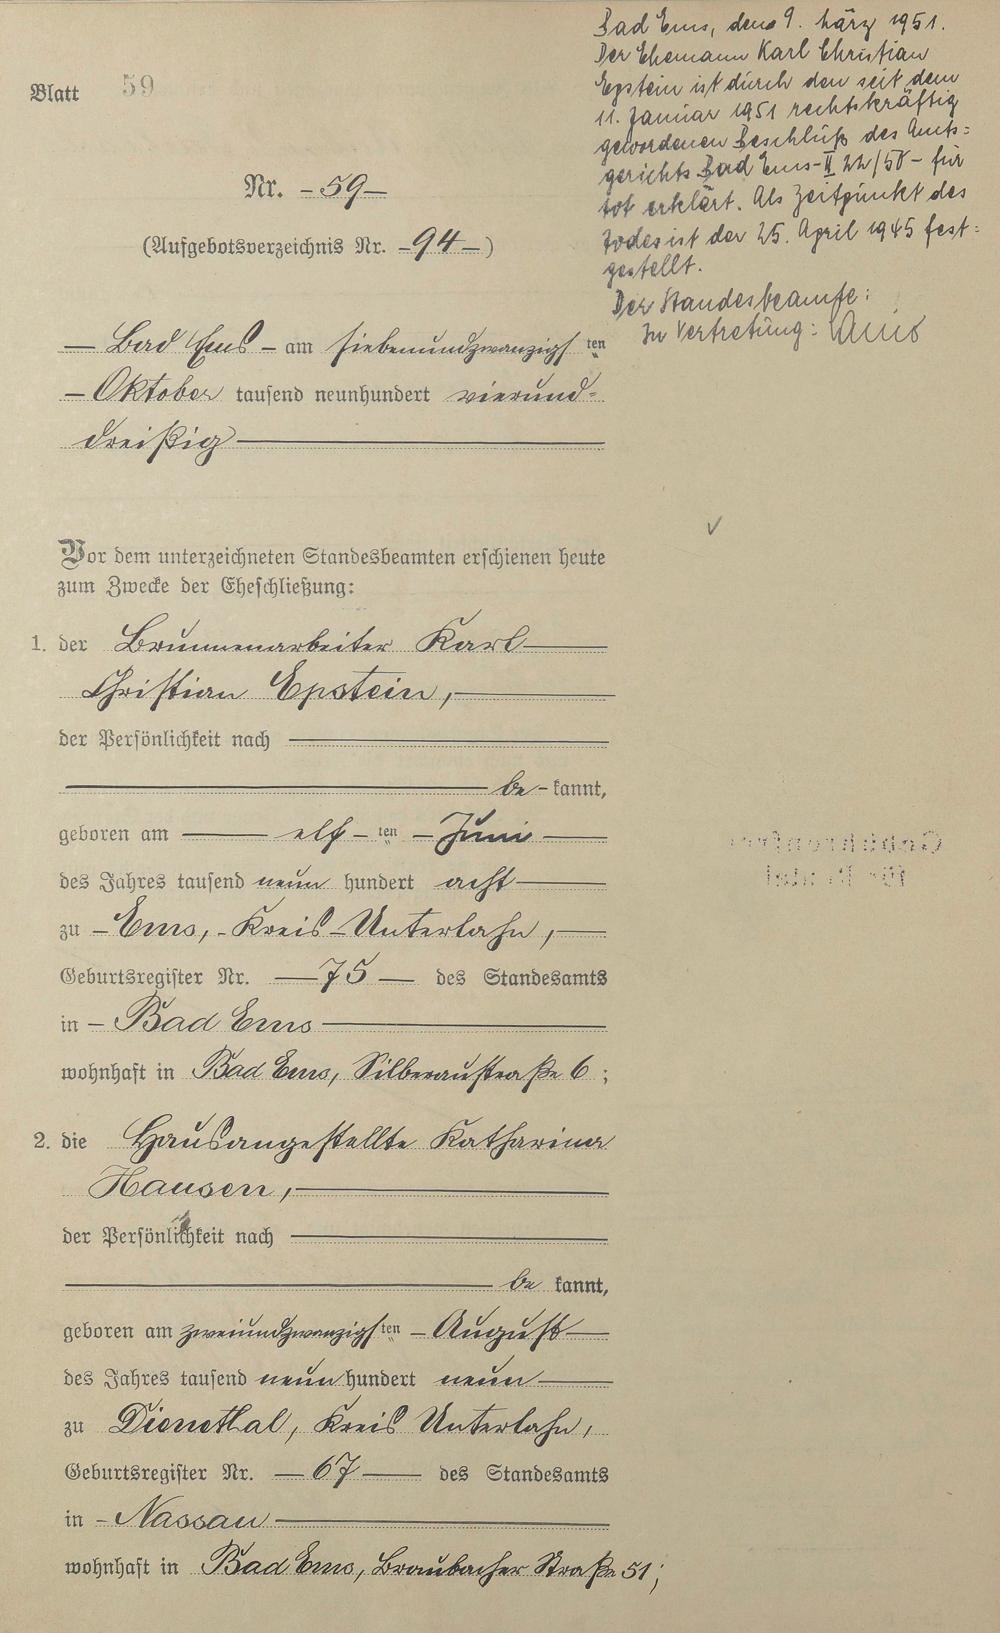 Blatt 59
Bad Ems, den 9. März 1951.
Der Ehemann Karl Christian
Epstein ist durch den seit dem
11. Januar 1951 rechtskräftig
gewordenen Beschluß des Amts=
gerichts Bad Ems - II 22/50 - für
tot erklärt. Als Zeitpunkt des
Todes ist der 25. April 1945 fest=
gestellt.
Der Standesbeamte:
In Vertretung:
Nr. - 59 -
(Aufgebotsverzeichnis Nr. - 94 - )
- Bad Ems - am siebenundzwanzigsten
- Oktober tausend neunhundert vierund=
dreißig
Vor dem unterzeichneten Standesbeamten erschienen heute
zum Zwecke der Eheschließung:
1. der Brunnenarbeiter Karl
Christian Epstein,
der Persönlichkeit nach
be - kannt,
geboren am elf - ten - Juni
des Jahres tausend neun hundert acht
zu - Ems, - Kreis - Unterlahn,
Geburtsregister Nr. - 75 - des Standesamts
in - Bad Ems
wohnhaft in Bad Ems, Silberaustraße 6 ;
2. die Hausangestellte Katharina
Hausen,
der Persönlichkeit nach
be kannt,
geboren am zweiundzwanzigsten - August
des Jahres tausend neun hundert neun
zu Dienethal, Kreis Unterlahn,
Geburtsregister Nr. - 67 - des Standesamts
in - Nassau
wohnhaft in Bad Ems, Braubacher Straße 51;